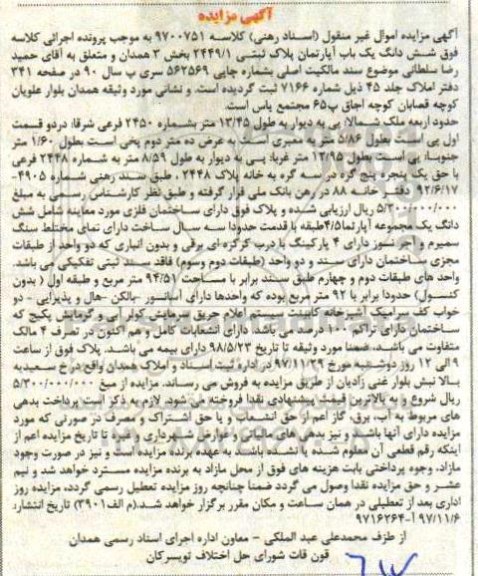 آگهی مزایده
آگهی مزایده اموال غیر منقول (اسناد رهنی) کلاسه ۹۷۰۰۷۵۱ به موجب پرونده اجرائی کلاسه
فوق شش دانگ یک باب آپارتمان پلاک ثبتی ۲۴۴۹/۱ بخش ۳ همدان و متعلق به آقای حمید
رضا سلطانی موضوع سند مالکیت اصلی بشماره چاپی ۵۶۲۵۶۹ سری پ سال ۹۰ در صفحه ۳۴۱
دفتر املاک جلد ۴۵ ذیل شماره ۷۱۶۶ ثبت گردیده است. و نشانی مورد وثیقه همدان بلوار علویان
کوچه قصابان کوچه اجاق پ۶۵ مجتمع یاس است.
حدود اربعه ملک شمالا: پی به دیوار به طول ۱۳/۴۵ متر بشماره ۲۴۵۰ فرعی شرقا: دردو قسمت
اول پی است بطول ۵/۸۶ متر به معبری است به عرض ده متر دوم پخی است بطول ۱/۶۰ متر
جنوبا: پی است بطول ۱۲/۹۵ متر غربا: پی به دیوار به طول ۸/۵۹ متر به شماره ۲۴۴۸ فرعی
با حق یک پنجره پنج گره در سه گره به خانه پلاک ۲۴۴۸ ، طبق سند رهنی شماره ۴۹۰۵-
۹۲/۶/۱۷ دفتر خانه ۸۸ در رهن بانک ملی قرار گرفته و طبق نظر کارشناس رسمی به مبلغ
۵/۳۰۰/۰۰۰/۰۰۰ ریال ارزیابی شده و پلاک فوق دارای ساختمان فلزی مورد معاینه شامل شش
دانگ یک مجموعه آپارتمان ۴/۵طبقه با قدمت حدودا سه سال ساخت دارای نمای مختلط سنگ
سمیرم و آجر نسوز دارای ۴ پارکینگ با درب کرکره ای برقی و بدون انباری که دو واحد از طبقات
مجزی ساختمان دارای سند و دو واحد (طبقات دوم وسوم) فاقد سند ثبتی تفکیکی می باشد.
واحد های طبقات دوم و چهارم طبق سند برابر با مساحت ۹۴/۵۱ متر مربع و طبقه اول ( بدون
کنسول) حدودا برابر با ۹۲ متر مربع بوده که واحدها دارای آسانسور -بالکن -هال و پذیرایی - دو
خواب کف سرامیک آشپزخانه کابینت سیستم اعلام حریق سرمایش کولر آبی و گرمایش پکیج که
ساختمان دارای تراکم ۱۰۰ درصد می باشد. دارای انشعابات کامل و هم اکنون در تصرف ۴ مالک
متفاوت می باشد. ضمنا مورد وثیقه تا تاریخ ۹۸/۵/۲۳ دارای بیمه می باشد. پلاک فوق از ساعت
۹ الی ۱۲ روز دوشنبه مورخ ۹۷/۱۱/۲۹ در اداره ثبت اسناد و املاک همدان واقع در خ سعیدیه
بالا نبش بلوار غنی زادیان از طریق مزایده به فروش می رساند. مزایده از مبلغ ۵/۳۰۰/۰۰۰/۰۰۰
ریال شروع و به بالاترین قیمت پیشنهادی نقدا فروخته می شود. لازم به ذکر است پرداخت بدهی
های مربوط به آب، برق، گاز اعم از حق انشعاب و یا حق اشتراک و مصرف در صورتی که مورد
مزایده دارای آنها باشد و نیز بدهی های مالیاتی و عوارض شهرداری و غیره تا تاریخ مزایده اعم از
اینکه رقم قطعی آن معلوم شده یا نشده باشد، به عهده برنده مزایده است و نیز در صورت وجود
مازاد، وجوه پرداختی بابت هزینه های فوق از محل مازاد به برنده مزایده مسترد خواهد شد و نیم
عشر و حق مزایده نقدا وصول می گردد ضمنا چنانچه روز مزایده تعطیل رسمی گردد، مزایده روز
اداری بعد از تعطیلی در همان ساعت و مکان مقرر برگزار خواهد شد.(م الف۳۹۰۱) تاریخ انتشار:
۹۷/۱۱/۶ آ-۹۷۱۶۲۶۴
از طرف محمدعلی عبد الملکی - معاون اداره اجرای اسناد رسمی همدان
قون قات شورای حل اختلاف تویسرکان